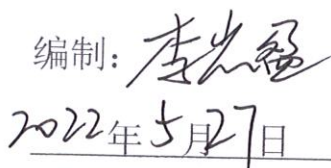 编制：李
2022年5月27日